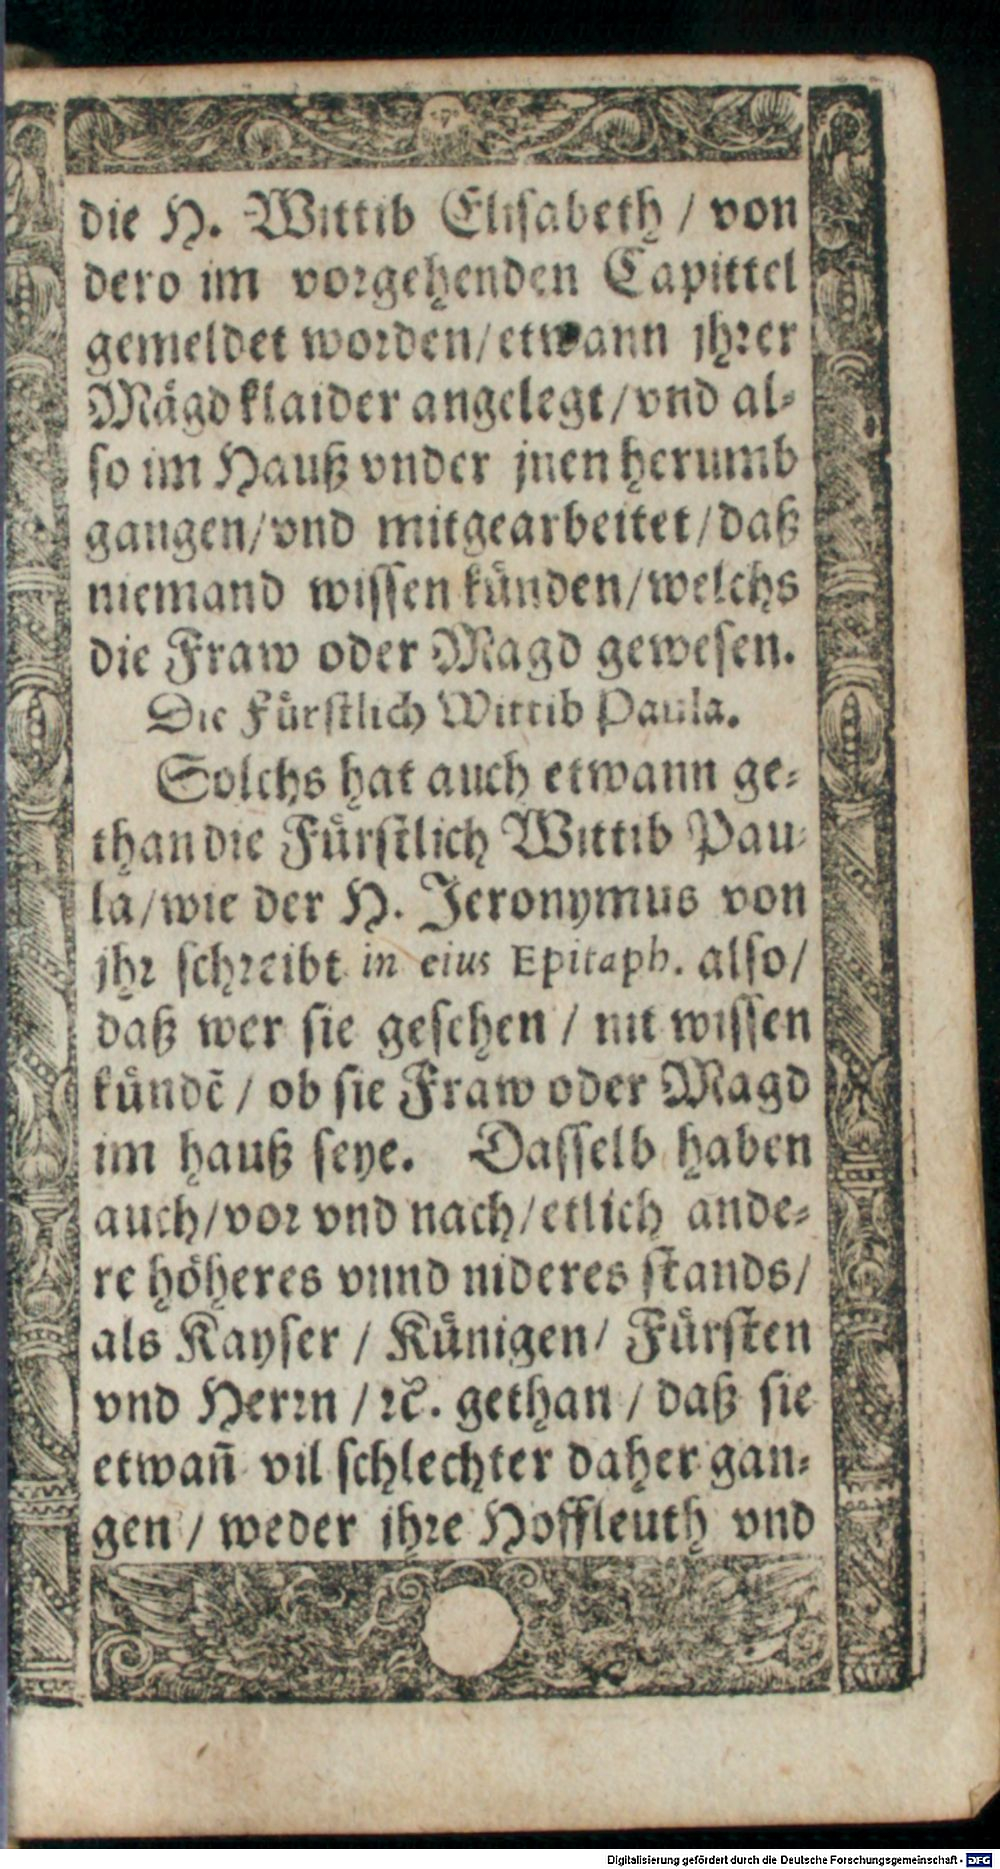 die H. Wittib Elisabeth / von
dero im vorgehenden Capittel
gemeldet worden/etwann jhrer
Mägd klaider angelegt/vnd al-
so im Hauß vnder jnen herumb
gangen/vnd mitgearbeitet/daß
niemand wissen künden/welchs
die Fraw oder Magd gewesen.
Die Fürstlich Wittib Paula.
Solchs hat auch etwann ge-
than die Fürstlich Wittib Pau-
la/wie der H. Jeronymus von
jhr schreibt in eius Epitaph. also/
daß wer sie gesehen / nit wissen
kündē / ob sie Fraw oder Magd
im hauß seye. Dasselb haben
auch/vor vnd nach/etlich ande-
re höheres vnnd nideres stands/
als Kayser / Künigen/ Fürsten
vnd Herrn / ꝛc. gethan / daß sie
etwañ vil schlechter daher gan-
gen / weder jhre Hoffleuth vnd
Digitalisierung gefördert durch die Deutsche Forschungsgemeinschaft - DFG